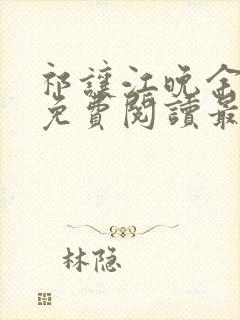 祁讓江晚全
免費閱讀最
林隐